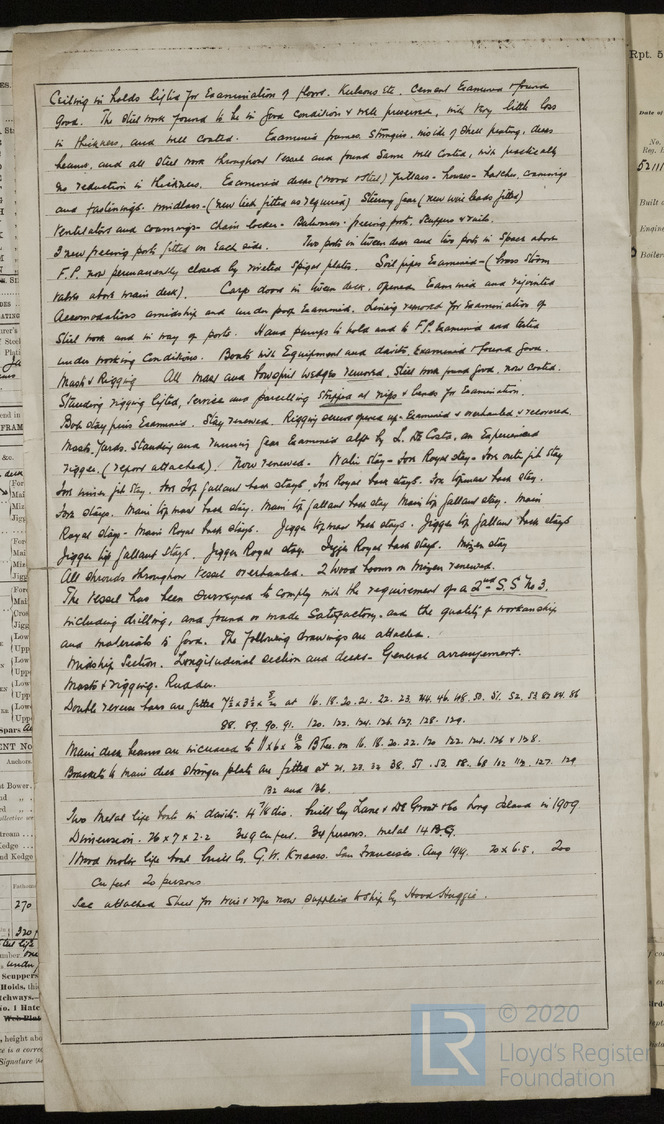 Ceiling in holds lifted for Examination of floors. Keelsons Etc. Cement Examined & found
Good. The steel work found to be in Good condition & well preserved, with very little loss
in thickness, and well coated. Examined frames, Stringers, inside of Shell plating, decks
beams, and all steel work throughout vessel and found same well coated, with practically
no reduction in thickness. Examined decks (wood & steel) pillars - houses - hatches, coamings
and fastenings. Windlass - (new fitted as required) Steering Gear (new wire leads fitted)
Ventilators and coamings - chain locker - Bulwarks - freeing ports, Scuppers & rails.
3 new freeing ports fitted on Each side. Two ports in tween deck and two ports in space above
F.P. now permanently closed by riveted Spigot plates. Soil pipes Examined - (brass storm
valves above main deck). Cargo doors in tween deck, opened Examined and rejointed
Accomodations amidship and under poop Examined. Lining removed for Examination of
Steel work and in way of ports. Hand pumps to hold and to F.P. Examined and tested
under working Conditions. Boats with Equipment and davits, Examined & found Good.
Masts & Rigging All mast and bowsprit wedges removed. Steel work found good, now coated.
Standing rigging lifted, service and parcelling stripped at nips & bands for Examination.
Bob stay pins Examined. Stay renewed. Rigging screws opened up - Examined & overhauled & recovered.
Masts, Yards, Standing and running Gear Examined aloft by L. De Costa, an Experienced
rigger, (report attached). Now renewed. Main Stay - Fore Royal stay - Fore outer jib stay
Fore inner jib stay. Fore Top gallant back stays. Fore Royal back stays. Fore topmast back stay.
Fore stays. Main top mast back stay. Main top gallant back stay Main top gallant stay. Main
Royal stay - Main Royal back stays. Jigger top mast back stays. Jigger top gallant back stays
Jigger top gallant stays. Jigger Royal stay. Jigger Royal back stays. Mizen stay
All shrouds throughout vessel overhauled. 2 wood booms on Mizen renewed.
The vessel has been surveyed to comply with the requirement of a 2nd S.S No 3.
including drilling, and found or made Satisfactory. and the quality of workmanship
and materials is good. The following drawings are attached.
Midship Section. Longitudinal section and decks - General arrangement.
Masts & rigging. Rudder.
Double reverse bars are fitted 7½ x 3½ x 8/20 at 16. 18. 20. 21. 22. 23. 44. 46. 48. 50. 51. 52. 53. 82 84. 86
88. 89. 90. 91. 120. 122. 124. 126. 127. 128. 129.
Main deck beams are increased to 11 x 6 x /20 B Tee. on 16. 18. 20. 22. 120 122. 124. 126 & 128.
Brackets to main deck stringer plate are fitted at 21. 23. 32 38. 51. 53. 58. 68 102 112. 127. 129
132 and 136.
Two Metal life boats in davits. 4 7/8 dia. built by Lane & De Groot & Co Long Island in 1909
Dimension. 26 x 7 x 2.2 349 cu feet. 34 persons. metal 14 BG.
1 Wood motor life boat built by G.W. Kneass. San Francisco. Aug 1919. 20 x 6.5. 200
Cu feet 20 persons
See attached Sheet for wire & rope now supplied to ship by Hood Haggie.
Rpt. 5
270
320
© 2020
LR
Lloyd's Register
Foundation